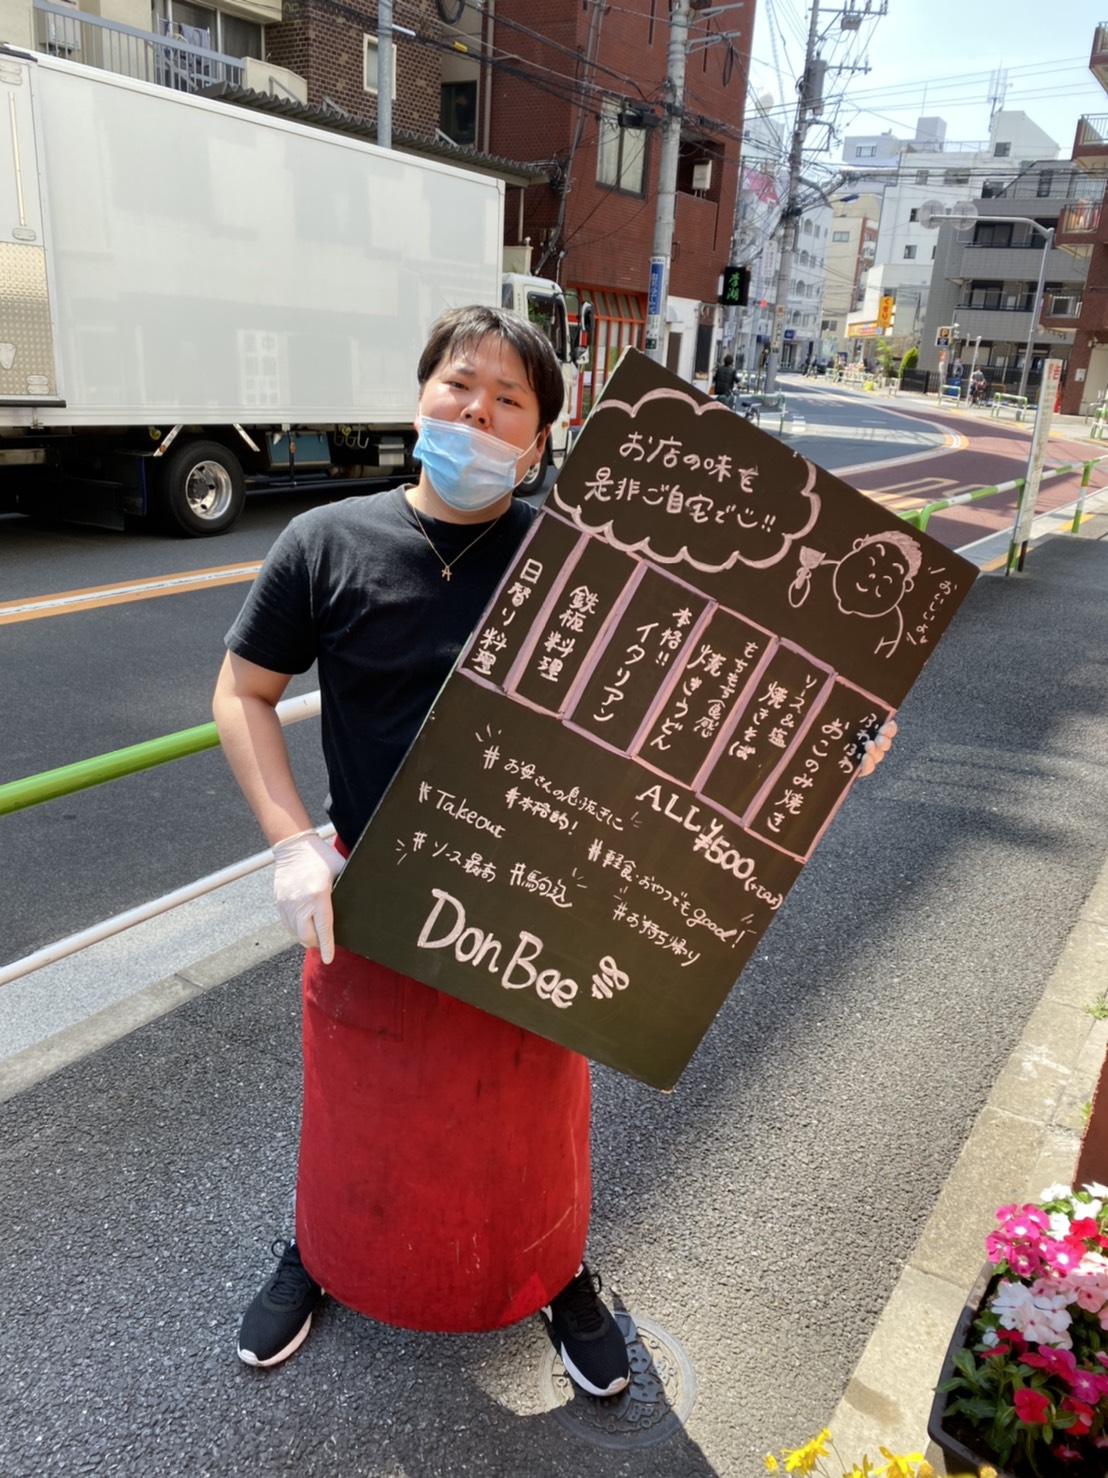 お店の味を
是非ご自宅で心!!
おいしいよ
ふわふわ
おこのみ焼き
ソース&塩
焼きそば
もちもち食感
焼きうどん
本格!!
イタリアン
鉄板料理
日替り料理
ALL¥500(+tax)
#お母さんの息抜きに
#本格的!
#Takeout
#軽食・おやつでもgood!
#ソース最高 #駒込
#お持ち帰り
DonBee